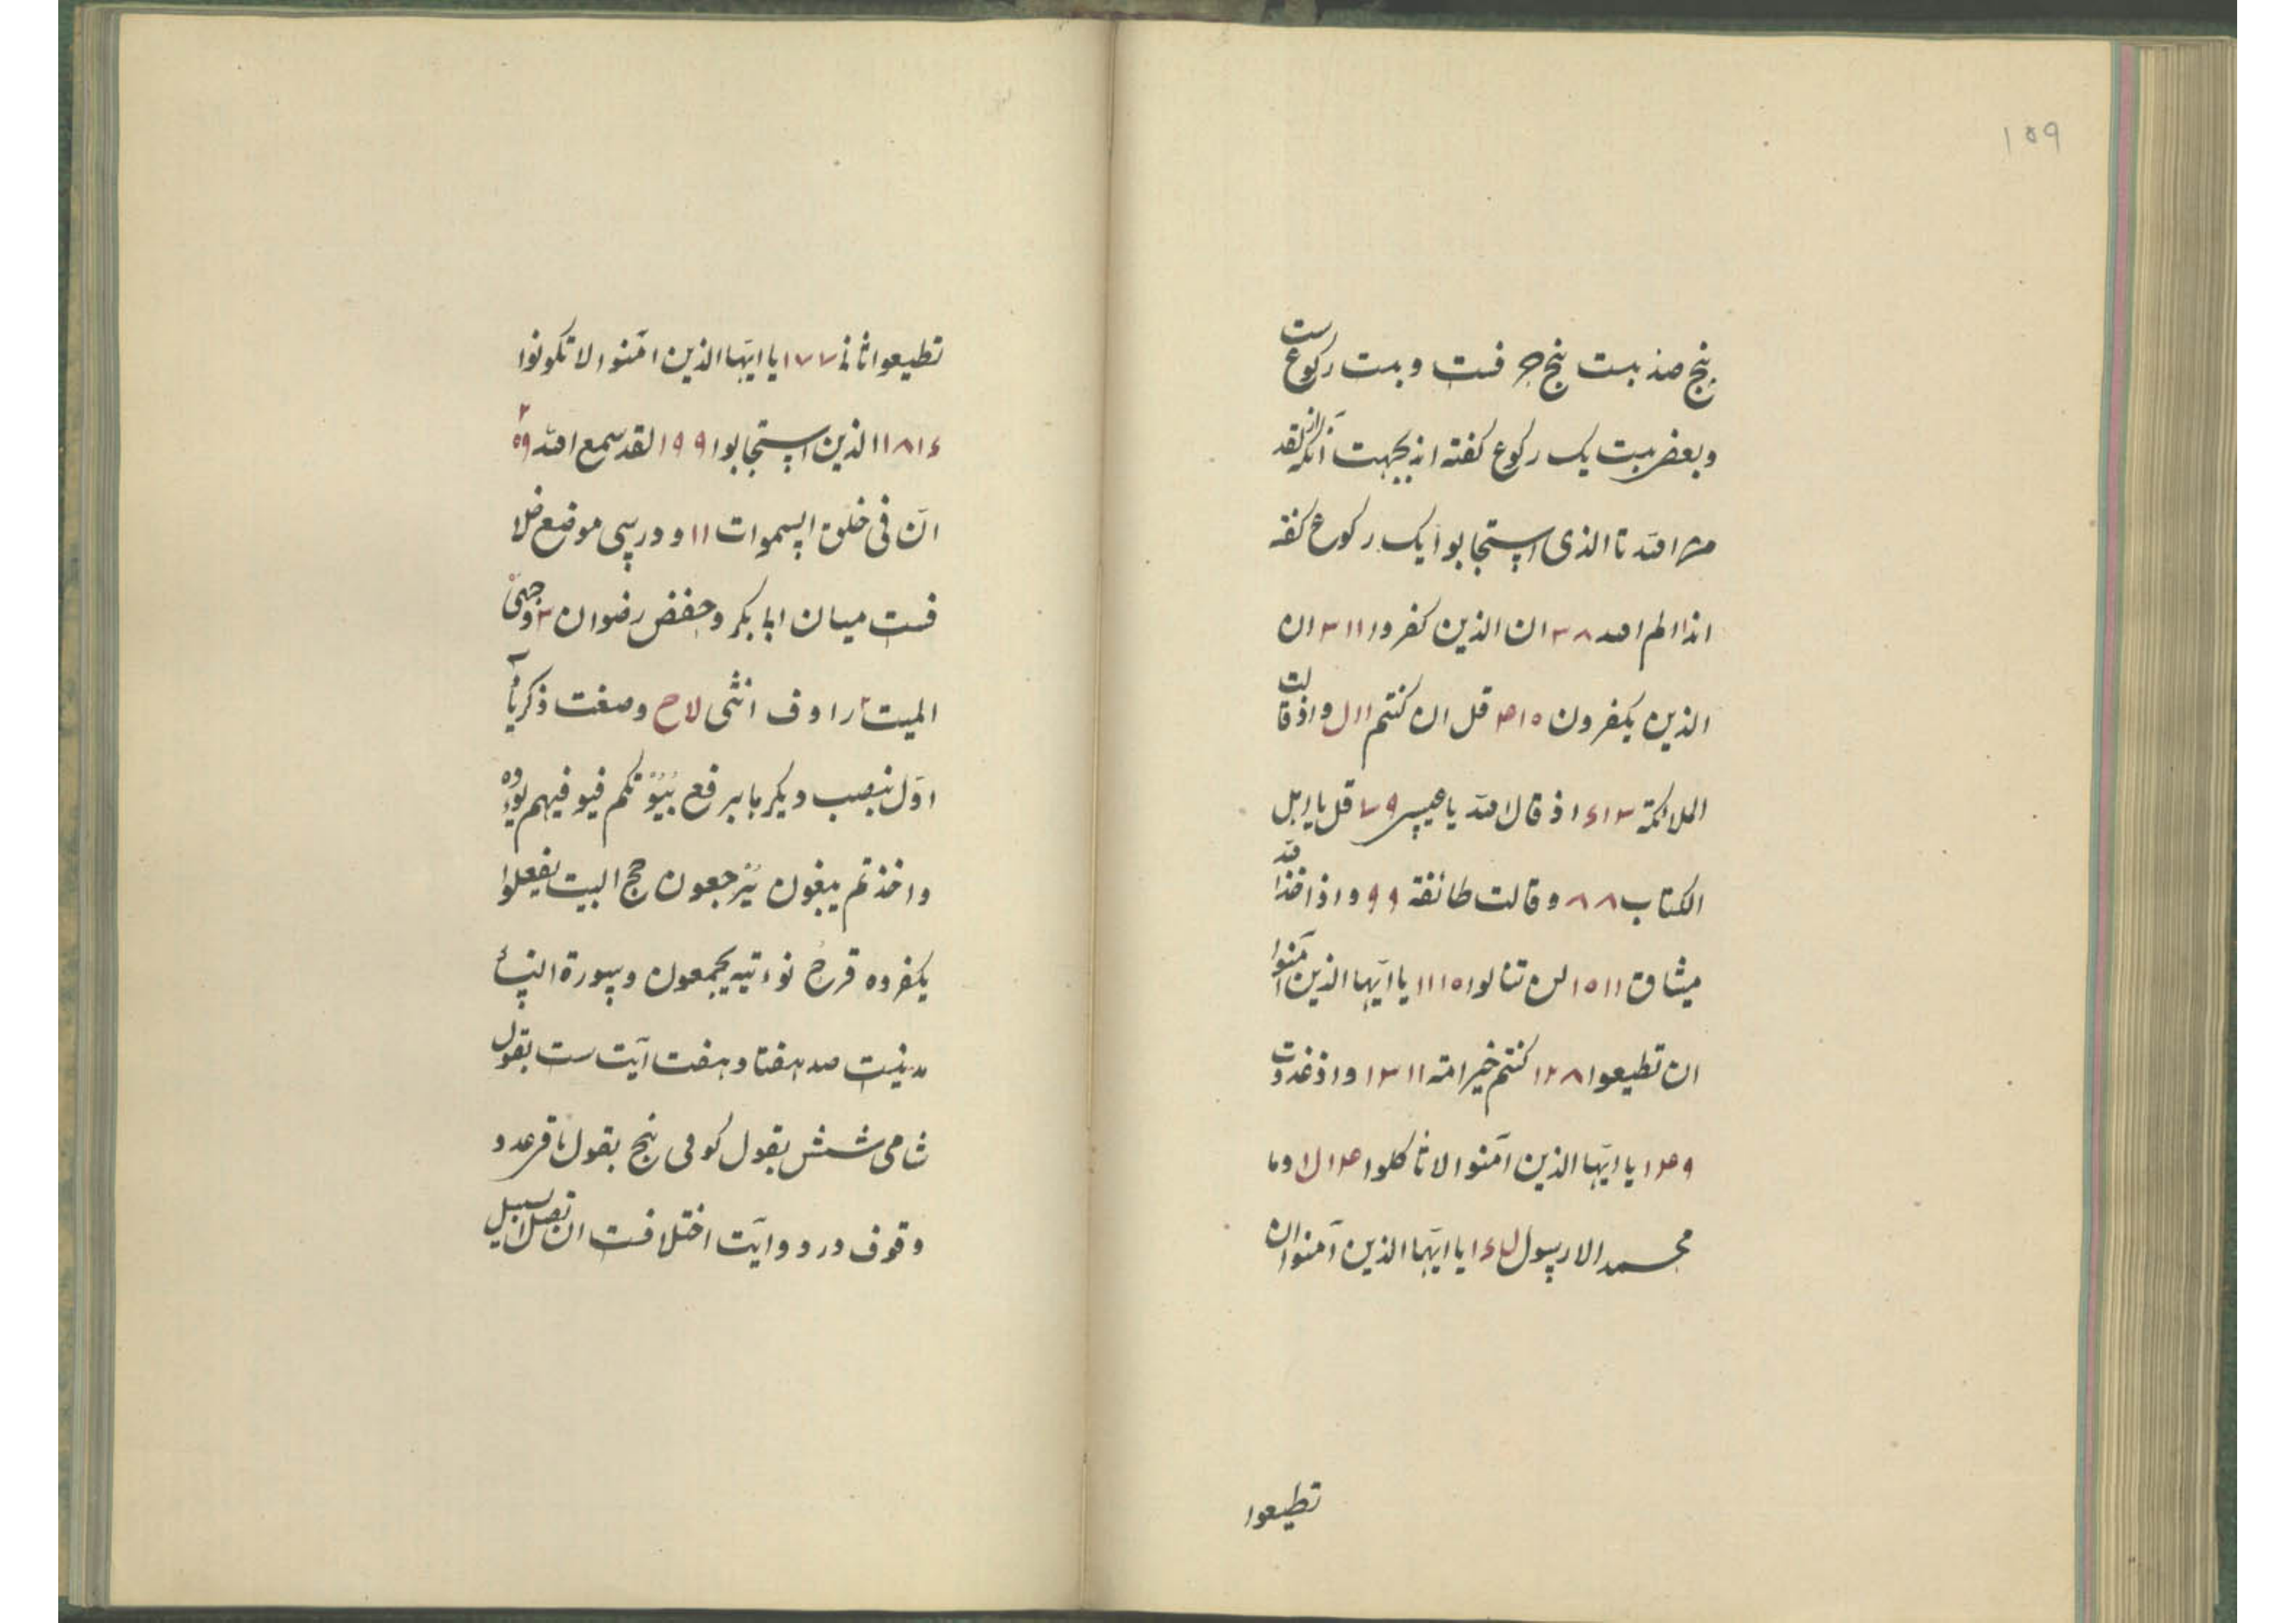 ۱۵۹
پنج صد بیست پنج حرفست و بیست رکوع ست
و بعضی بیست یک رکوع گفته اند بجهت آنکه از لقد
من الله تا الذی استجابوا یک رکوع گفته
اند الم الله ۳۸ ان الذین کفروا ۳۱۱ ان
الذین یکفرون قل ان کنتم ۱۱ل و اذ قالت
الملائکة ۳۱۶ اذ قال الله یا عیسی ۷۹ قل یا اهل
الکتاب ۸۸ و قالت طائفة ۹۹ و اذ اخذ الله
میثاق ۱۵۱۱ لن تنالوا ۱۱۱۵ یا ایّها الذین آمنوا
ان تطیعوا ۱۲۸ کنتم خیر امة ۱۳۱۱ و اذ غدوت
۱۴۹ یا ایّها الذین آمنوا لا تاکلوا و ما
محمد الا رسول یا ایّها الذین آمنوا ان
تطیعوا
تطیعوا ثانی ۱۷۷ یا ایّها الذین امٓنوا لا تکونوا
۱۸۱۶ الذین استجابوا ۱۹۹ لقد سمع الله
انّ فی خلق السموات ۱۱ و در سی موضع خلا
فست میان ابابکر و حفص رضوان ۳ وجهی
المیت را وف انثی لاح وصغت ذکریا
اوّل بنصب دیگر با برفع بُیُوتکم فیوفیهم
و اخذتم یبغون یرجعون حج البیت یفعلوا
یکفروه قرح نوءتیه یجمعون و سورة النساء
مدنیست صد هفتاد و هفت آیت ست بقول
شامی شش بقول کوفی پنج بقول باقر عدد
وقوف در دو آیت اختلافست ان تضلّ السبیل